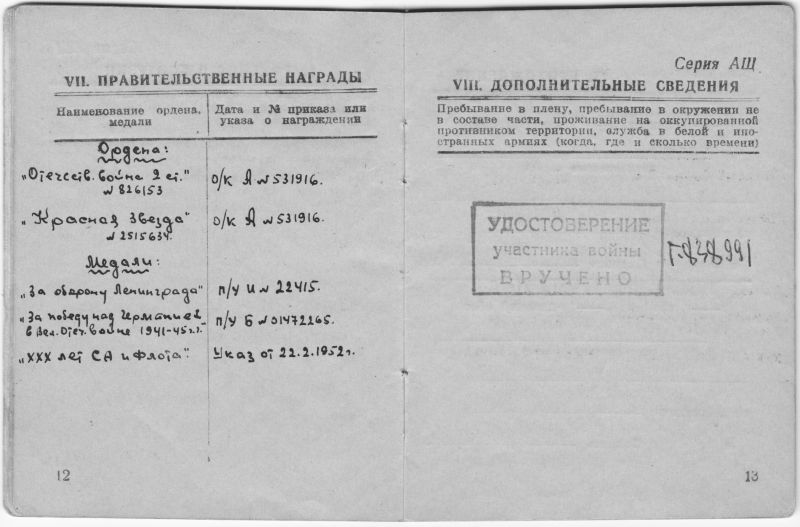 VII. ПРАВИТЕЛЬСТВЕННЫЕ НАГРАДЫ
Наименование ордена, медали
Дата и № приказа или указа о награждении
Ордена:
„Отечеств. войны 2 ст."
N 826153
о/к А N 531916.
„Красная Звезда"
N 2515634.
о/к А N 531916.
Медали:
„За оборону Ленинграда"
п/у И N 22415.
„За победу над Германией
в Вел. Отеч. войне 1941-45г.г."
п/у Б N 01472265.
„XXX лет СА и Флота".
Указ от 22.2.1952г.
12
Серия АЩ
VIII. ДОПОЛНИТЕЛЬНЫЕ СВЕДЕНИЯ
Пребывание в плену, пребывание в окружении не
в составе части, проживание на оккупированной
противником территории, служба в белой и ино-
странных армиях (когда, где и сколько времени)
УДОСТОВЕРЕНИЕ
участника войны
ВРУЧЕНО
Г-838991
13